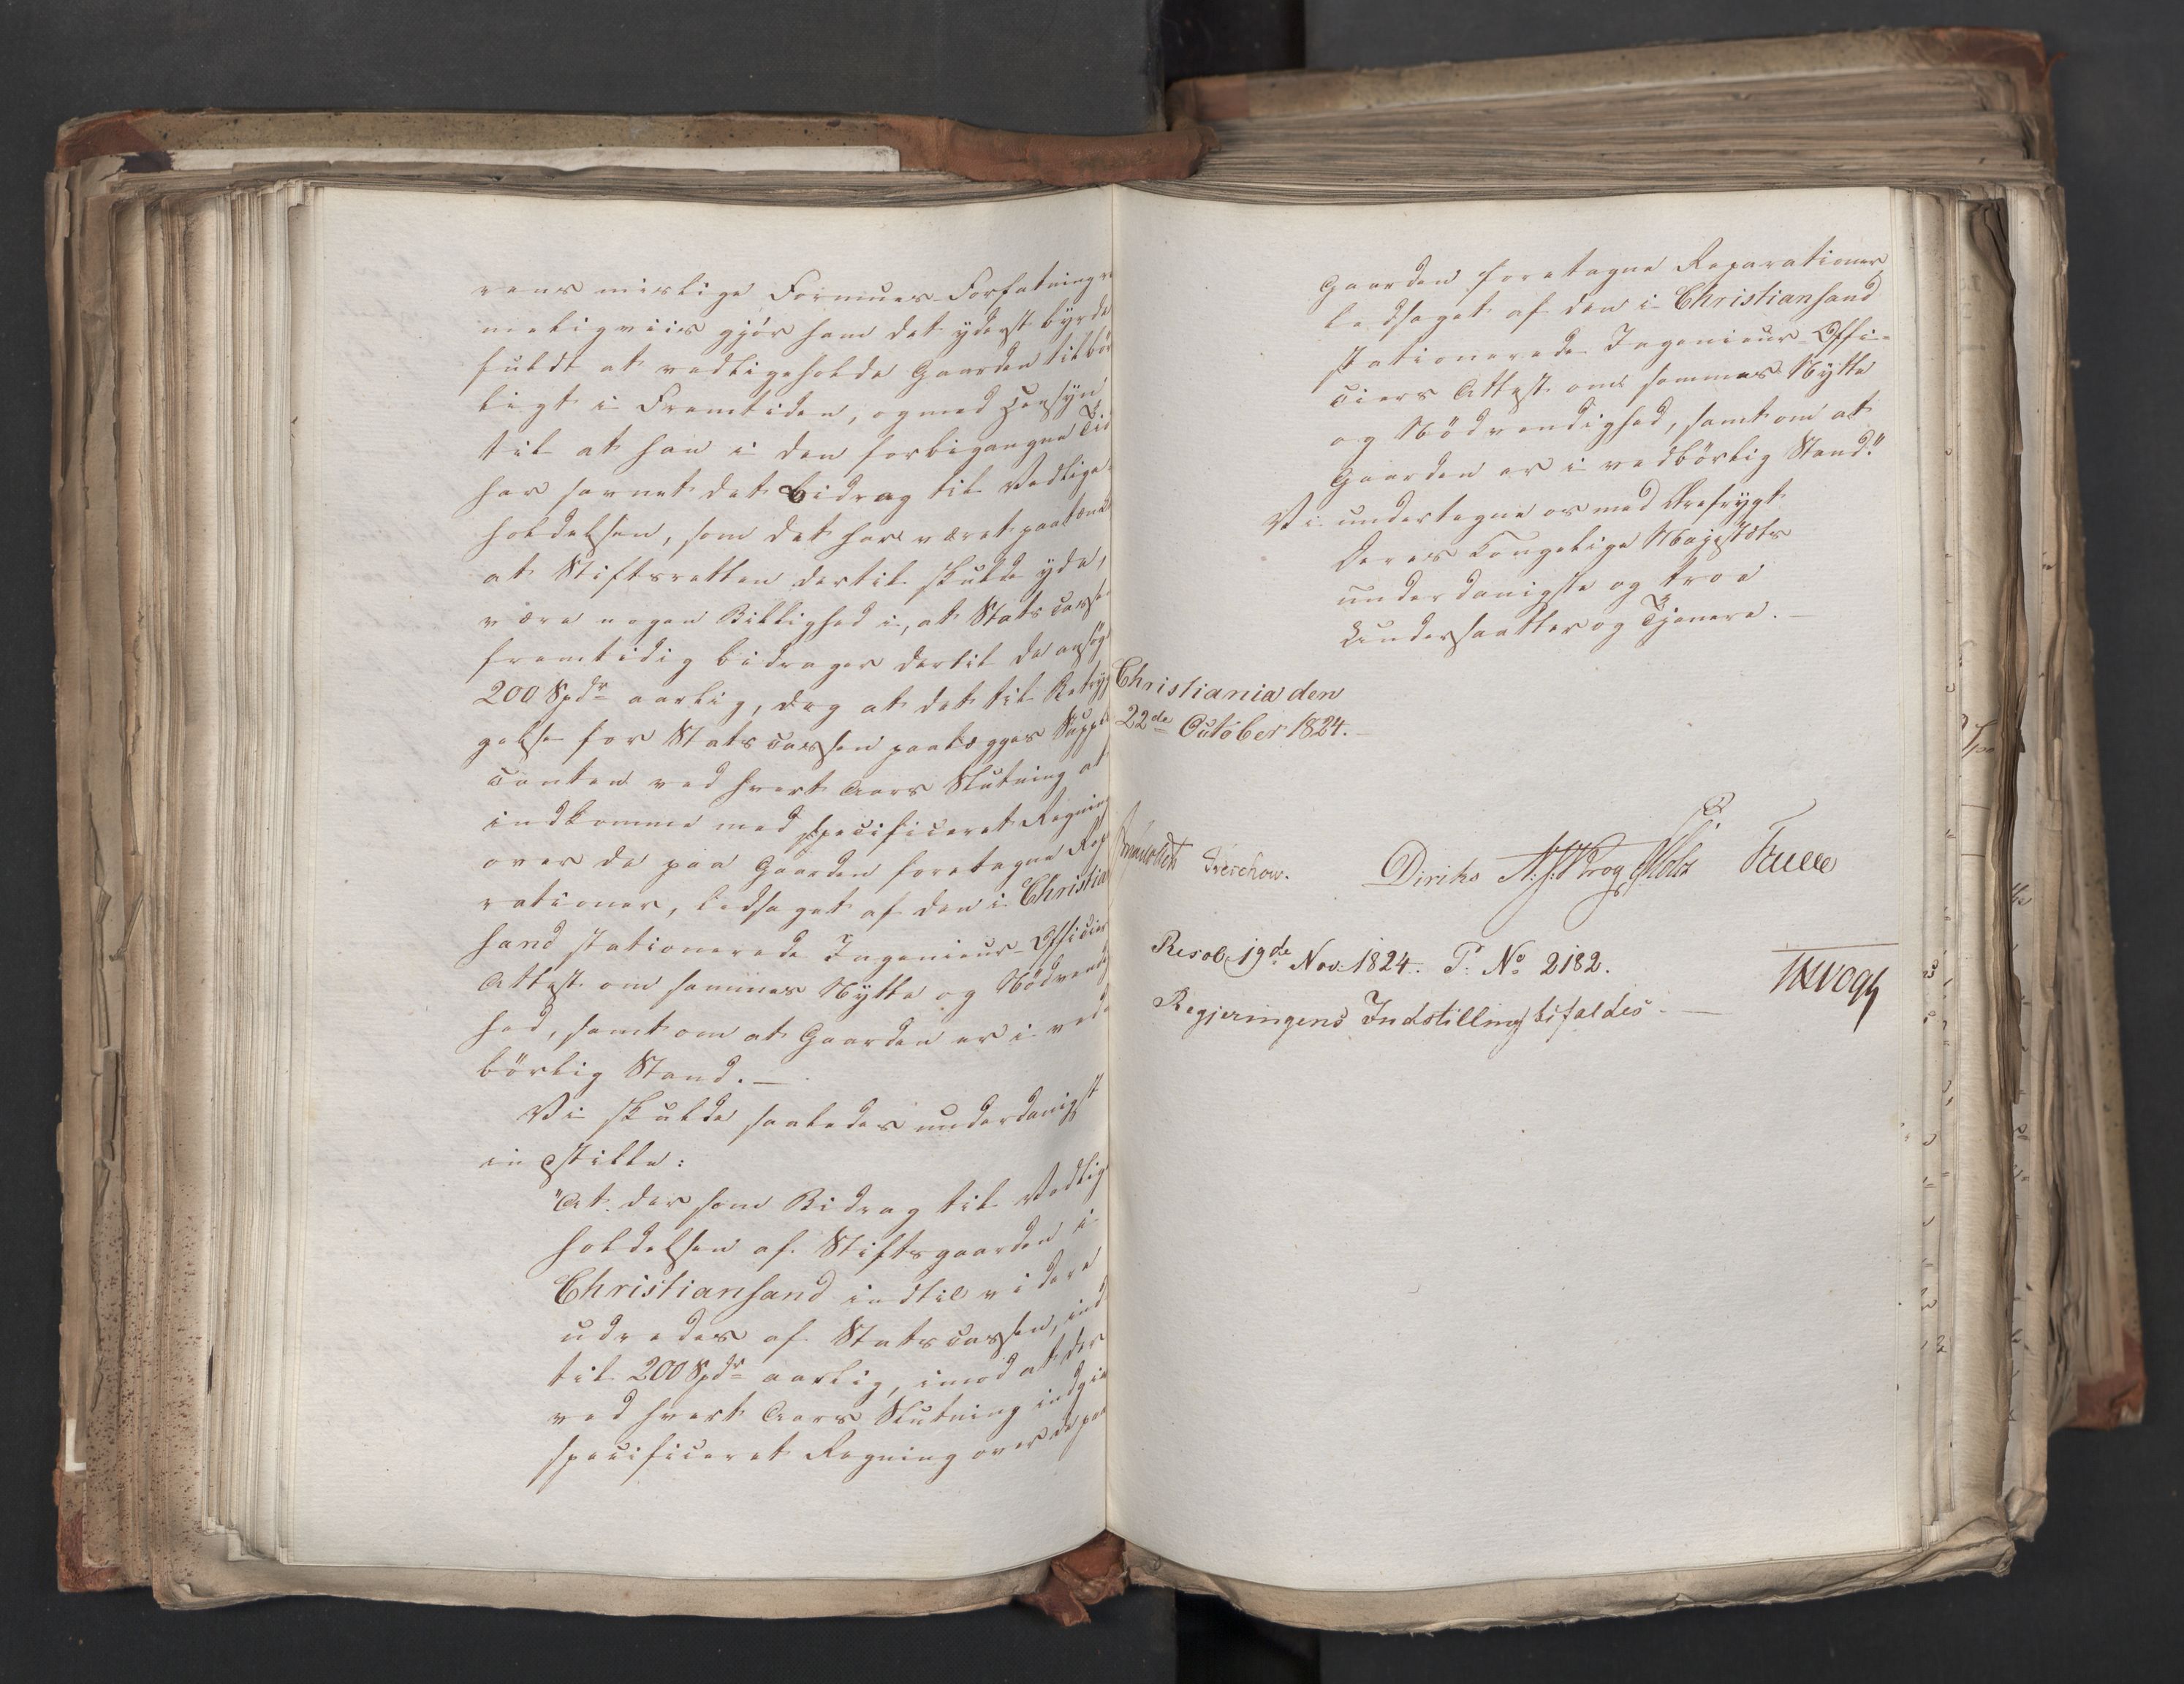 rens mislige Formues-Forfatning ri
meligviis gjör ham det yderst byrde
fuldt at vedligeholde Gaarden tilbör
ligt i Fremtiden, og med Hensyn
til at han i den forbigangne Tid
har savnet det Bidrag til Vedlige-
holdelsen, som det har været paatænkt
at Stiftsretten dertil skulde yde,
være nogen Billighed i, at Statscassen
fremtidig bidrager dertil de ansög
200 Spdr aarlig, dog at det til Betryg
gelse for Statscassen paalægges Suppli
canten ved hvert Aars Slutning at
indkomme med specificeret Regning
over de paa Gaarden foretagne Rep
rationer, ledsaget af den i Christian
sand stationerede Ingenieur-Officiers
Attest om sammes Nytte og Nödvendig
hed, samt om at Gaarden er i ved
börlig Stand. —
Vi skulde saaledes underdanigst
indstille:
"At der som Bidrag til Vedlige
holdelsen af Stiftsgaarden i
Christiansand indtil videre
udredes af Statscassen, ind
til 200 Spdr aarlig, imod at der
ved hvert Aars Slutning indgives
specificeret Regning over de paa
Gaarden foretagne Reparationer
ledsaget af den i Christiansand
stationerede Ingenieur-Offi-
ciers Attest om sammes Nytte
og Nödvendighed, samt om at
Gaarden er i vedbörlig Stand."
Vi undertegne os med Ærefrygt
Deres Kongelige Majestæts
underdanigste og troe
Undersaatter og Tjenere. —
Christiania den
22de October 1824. —
Treschow. Diriks N. J. Krog JHolst Fasting
Resol. 19de Nov. 1824. P. No 2182.
THVogt
Regjeringens Indstilling bifaldes. —